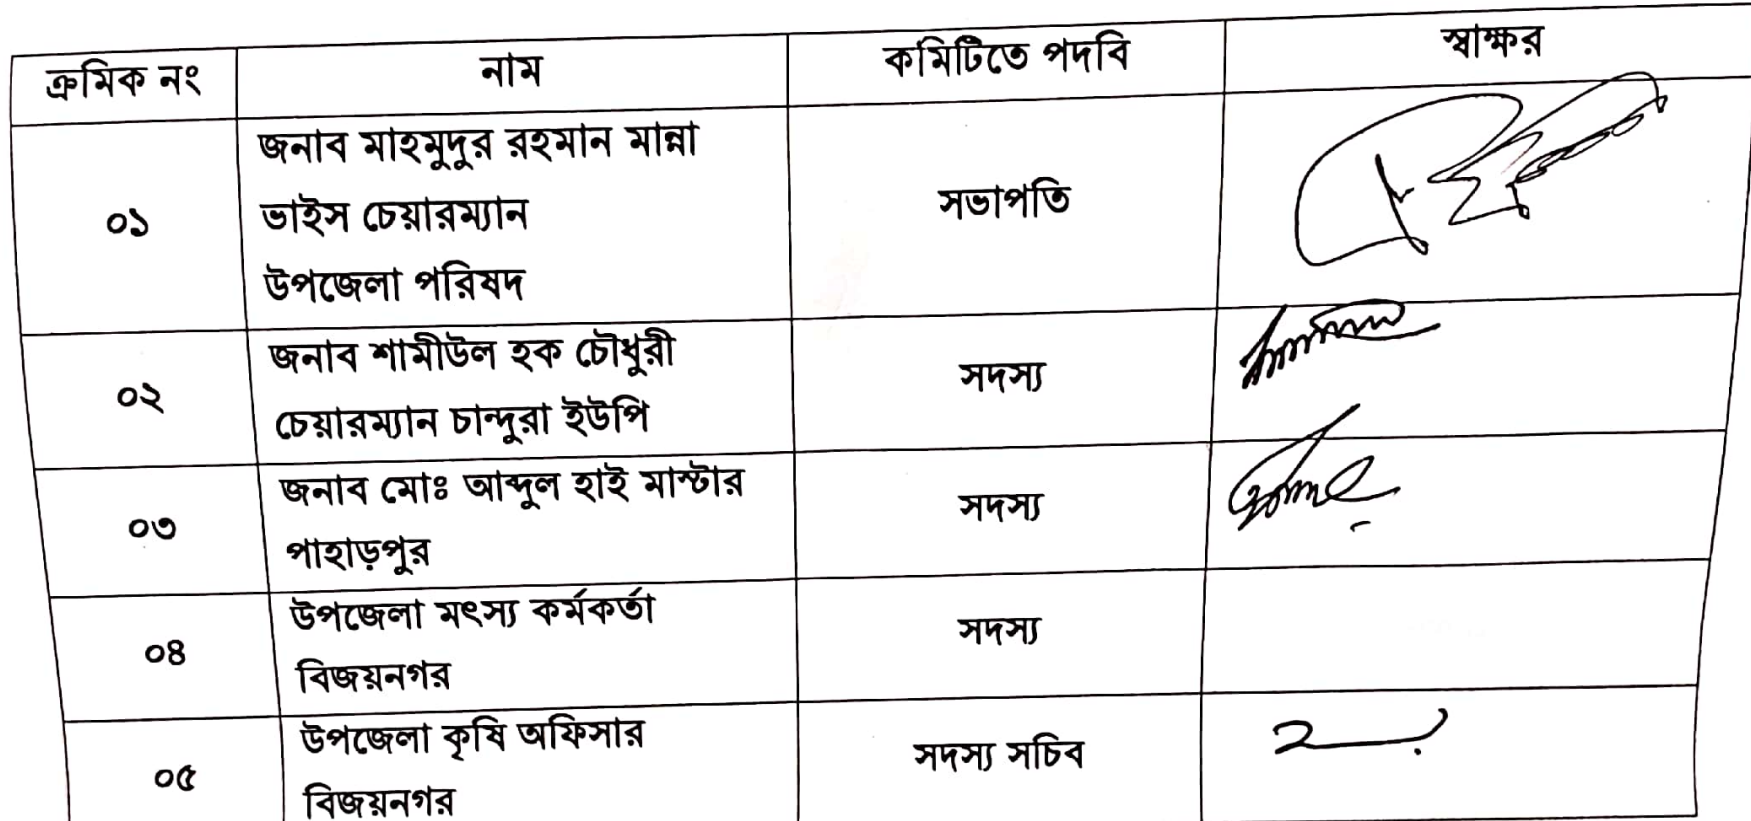 ক্রমিক নং নাম কমিটিতে পদবি স্বাক্ষর
জনাব মাহমুদুর রহমান মান্না
০১ ভাইস চেয়ারম্যান সভাপতি
উপজেলা পরিষদ
জনাব শামীউল হক চৌধুরী
০২ চেয়ারম্যান চান্দুরা ইউপি সদস্য
জনাব মোঃ আব্দুল হাই মাস্টার
০৩ পাহাড়পুর সদস্য
উপজেলা মৎস্য কর্মকর্তা
০৪ বিজয়নগর সদস্য
উপজেলা কৃষি অফিসার
০৫ বিজয়নগর সদস্য সচিব